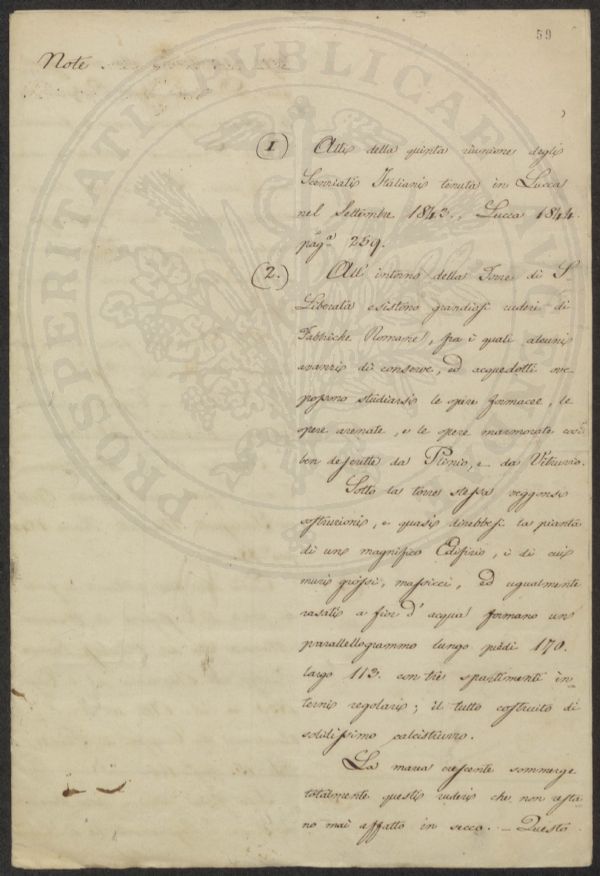 59
Note
(1) Atti della quinta riunione degli
Scienziati Italiani tenuta in Lucca
nel Settembre 1843., Lucca 1844.
pag.a 259.
(2.) All' intorno della Torre di S
Liberata esistono grandiosi ruderi di
Fabbriche Romane, fra i quali alcuni
avanzi di conserve, ed acquedotti ove
possono studiarsi le opere formacee, le
opere arenate, e le opere marmorate così
ben descritte da Plinio, e da Vitruvio.
Sotto la torre stessa veggonsi
costruzioni, e quasi direbbesi la pianta
di un magnifico Edifizio, i di cui
muri grossi, massicci, ed ugualmente
rasati a fior d' acqua formano un
parallellogrammo lungo piedi 170.
largo 113. con tre spartimenti in=
terni regolari; il tutto costruito di
solidissimo calcistruzzo.
La marea crescente sommerge
totalmente questi ruderi che non resta=
no mai affatto in secco. _ Questo
PROSPERITATI PUBLICAE